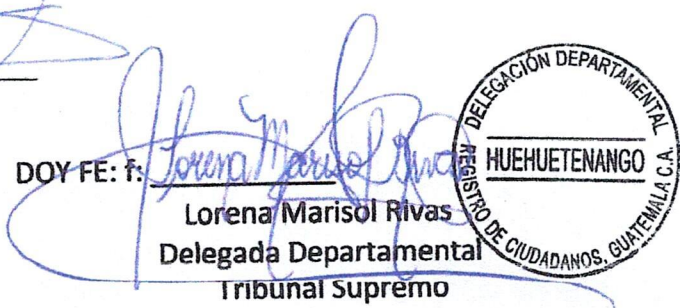 DOY FE: f: Lorena Marisol Rivas
Lorena Marisol Rivas
Delegada Departamental
Tribunal Supremo
DELEGACIÓN DEPARTAMENTAL
HUEHUETENANGO
REGISTRO DE CIUDADANOS, GUATEMALA C.A.